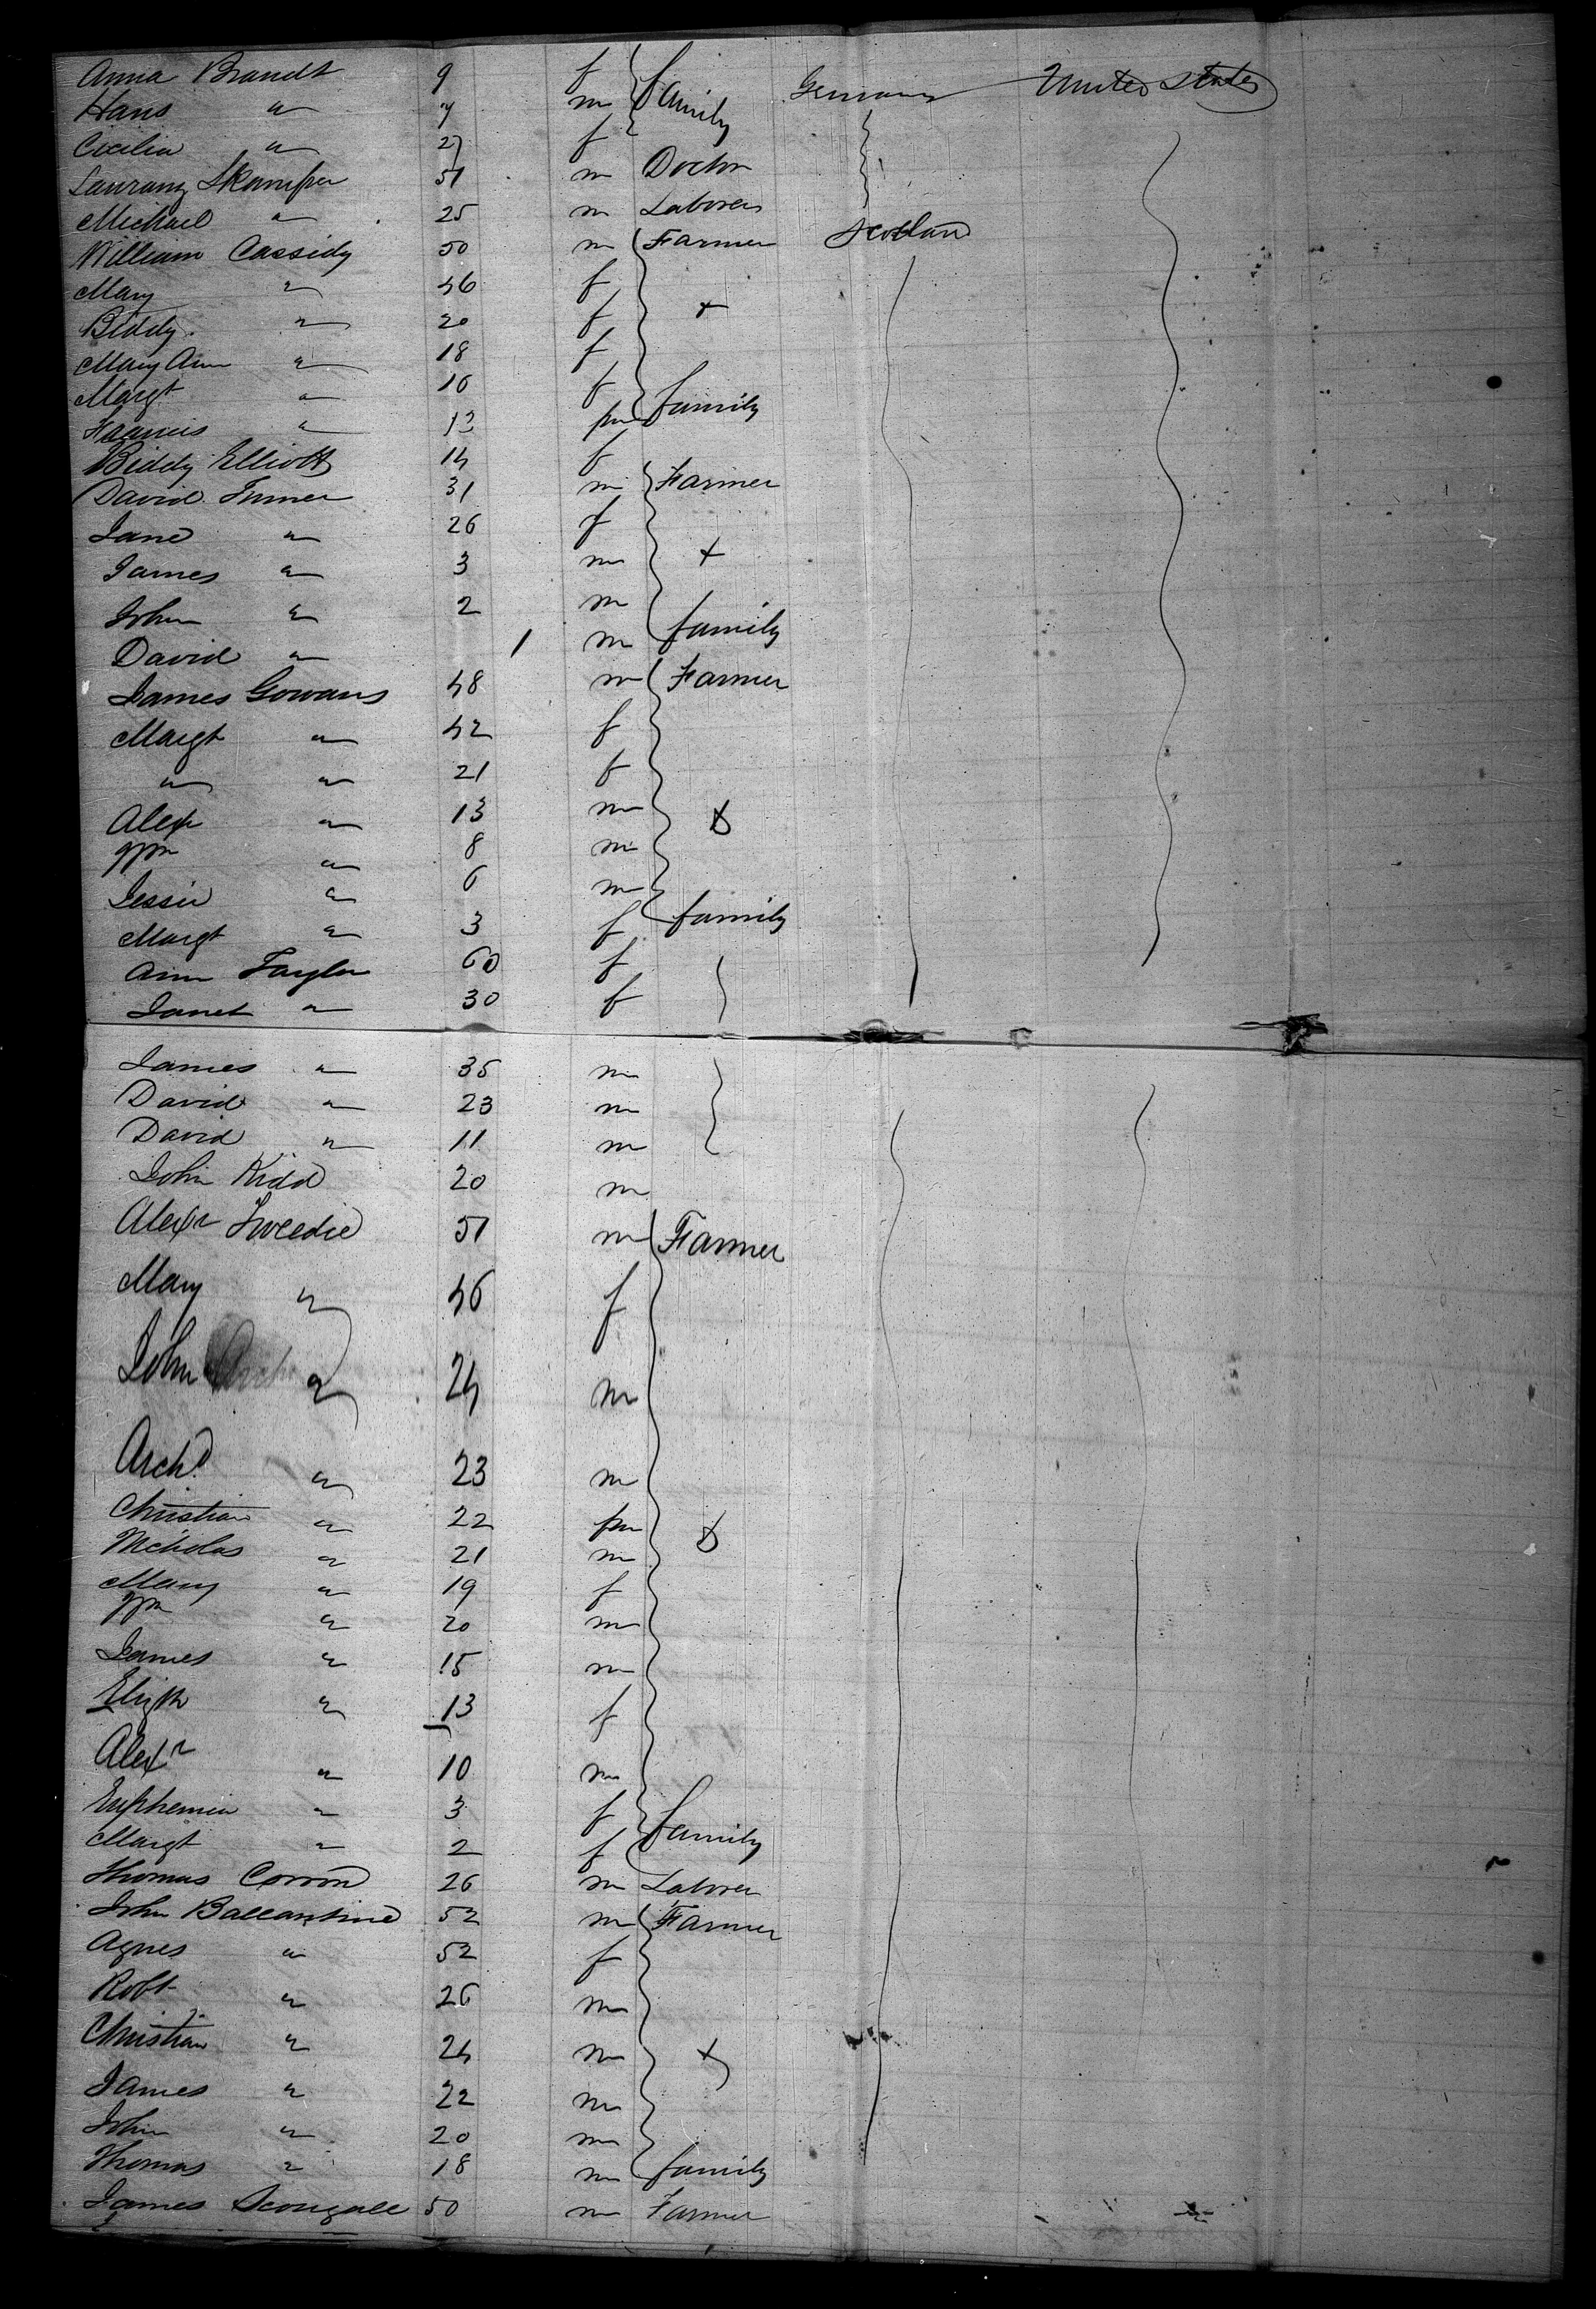 Anna Brandt 9 f family Germany United States
Hans " 7 m
Cicilia " 27 f
Lauranz Skamper 51 m Doctor
Michael " 25 m Laborer
William Cassidy 50 m Farmer Scotland
Mary " 46 f
Biddy " 20 f +
Mary Ann " 18 f
Margt " 16 f family
Francis " 13 m
Biddy Elliott 14 f
David Turner 31 m Farmer
Jane " 26 f
James " 3 m +
John " 2 m
David " 1 m family
James Gowans 48 m Farmer
Margt " 42 f
" " 21 f
Alexr " 13 m
Wm " 8 m
Jessie " 6 m
Margt " 3 f family
Ann Taylor 60 f
Janet " 30 f
James " 35 m
David " 23 m
David " 11 m
John Kidd 20 m
Alexr Tweedie 51 m Farmer
Mary " 46 f
John " 24 m
Archd " 23 m
Christian " 22 m
Nicholas " 21 m
Mary " 19 f
Wm " 20 m
James " 15 m
Elizth " 13 f
Alexr " 10 m
Euphemia " 3 f family
Margt " 2 f
Thomas 26 m Laborer
John Ballantine 52 m Farmer
Agnes " 52 f
Robt " 26 m
Christian " 24 m +
James " 22 m
John " 20 m
Thomas " 18 m family
James Scougall 50 m Farmer